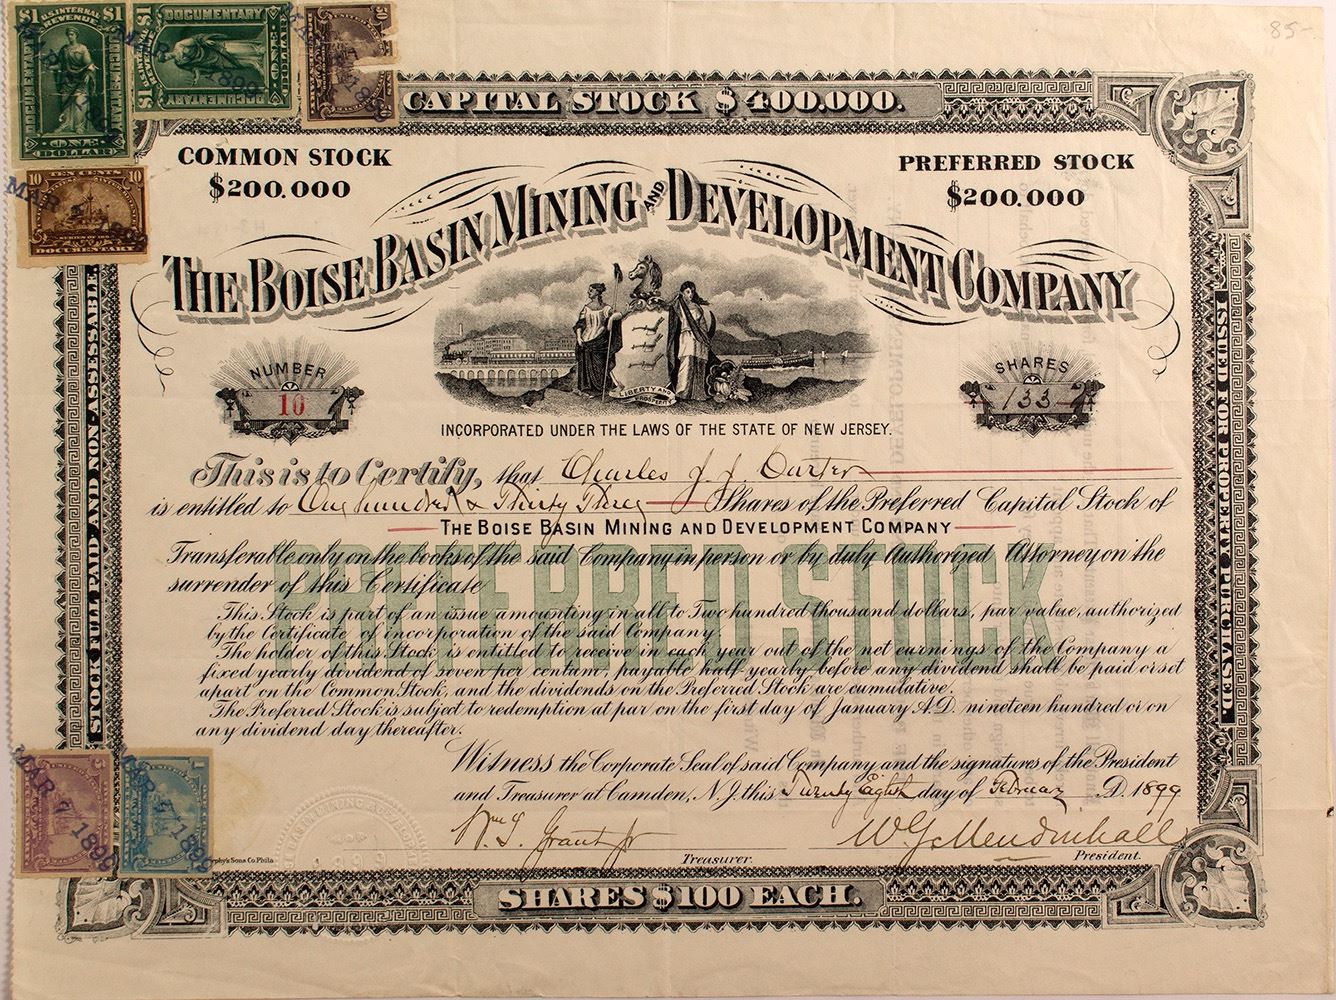 $1 U.S. INTERNAL REVENUE. $1
DOCUMENTARY
DOCUMENTARY
ONE
DOLLAR
MAR 7 1899
$1 DOCUMENTARY
ONE DOLLAR
$1 DOCUMENTARY
MAR 7 1899
50
MAR 7 1899
10 TEN CENTS 10
DOCUMENTARY
MAR 7 1899
85-
CAPITAL STOCK $400.000.
COMMON STOCK
$200.000
PREFERRED STOCK
$200.000
THE BOISE BASIN MINING AND DEVELOPMENT COMPANY
NUMBER
10
SHARES
133
LIBERTY AND
PROSPERITY
INCORPORATED UNDER THE LAWS OF THE STATE OF NEW JERSEY.
This is to Certify, that Charles J. J. Carter
is entitled to One hundred & Thirty Three Shares of the Preferred Capital Stock of
THE BOISE BASIN MINING AND DEVELOPMENT COMPANY
Transferable only on the books of the said Company in person or by duly Authorized Attorney on the
surrender of this Certificate
This Stock is part of an issue amounting in all to Two hundred thousand dollars, par value, authorized
by the Certificate of incorporation of the said Company
The holder of this Stock is entitled to receive in each year out of the net earnings of the Company a
fixed yearly dividend of seven per centum, payable half yearly before any dividend shall be paid or set
apart on the Common Stock, and the dividends on the Preferred Stock are cumulative.
The Preferred Stock is subject to redemption at par on the first day of January A.D. nineteen hundred or on
any dividend day thereafter.
PREFERRED STOCK
Witness the Corporate Seal of said Company and the signatures of the President
and Treasurer at Camden, N.J. this Twenty Eighth day of February A.D. 1899
Wm S. Grant Jr
Treasurer.
W G Mendenhall
President.
Sons Co. Phila
SHARES $100 EACH.
STOCK FULL PAID AND NON-ASSESSABLE
ISSUED FOR PROPERTY PURCHASED.
5
MAR 7 1899
1
MAR 7 1899